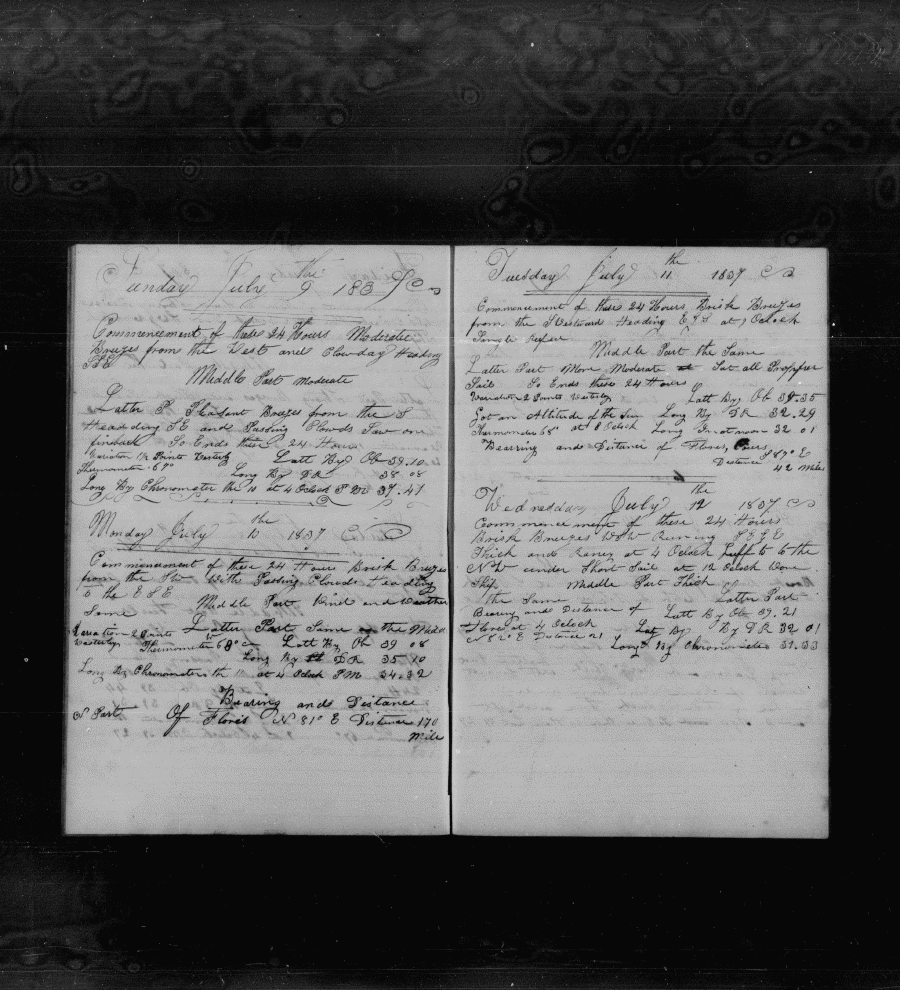 Sunday July the 9 1837
Commencement of these 24 Hours Moderate
Breezes from the West and Clowday Heading
SSE
Middle Part moderate
Latter P Pleasant Breezes from the S
Heading SE and Passing Clowds Saw one
finback So Ends these 24 Hours
Variation 1½ Points Westerly Latt By Ob 39.10
Thermometer 67° Long By DR 38 08
Long By Chronometer the 10 at 4 Oclock P M 37.41
Monday July the 10 1837
Commencement of these 24 Hours Brisk Breezes
from the SW With Passing Clowds Heading
to the ESE Middle Part Wind and Weather
Same Latter Part Same as the Midd
Variation 2 Points
Westerly Thermometer 68° Latt By Ob 39 08
Long By DR 35 10
Long By Chronometer the 11 at 4 Oclock PM 34.32
Bearing and Distance
N Part Of Flores N 81° E Distance 170
Mile
Tuesday July the 11 1837
Commencement of these 24 Hours Brisk Breezes
from the Westward Heading at 1 Oclock
Single Reefed
Middle Part the Same
Latter Part More Moderate Sat all Propper
Sail So Ends these 24 Hours
Variation 2 Points Westerly Latt By Ob 39.35
Got an Altitude of the Sun Long By DR 32.29
Thermometer 68° at 8 Oclock Long In at noon 32 01
Bearing and Distance of Flores,
S 87° E
Distance 42 Miles
Wednesday July the 12 1837
Commencement of these 24 Hours
Brisk Breezes WSW Runing
Thick and Raney at 4 Oclock Luff to to the
NW under Short Sail at 12 Oclock Wore
Ship Middle Part Thick
the Same Latter Part
Bearing and Distance of Latt By Ob 39.21
Flores at 4 Oclock By DR 32 01
N 82° E Distance 21
Long By Chronometer 31.33